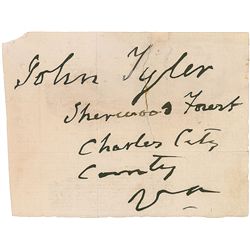 John Tyler
Sherwood Forest
Charles City
County
Va